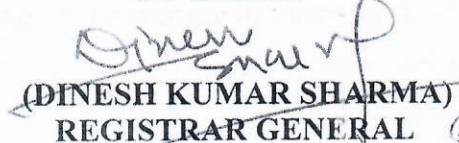 Dinesh
Sharma
(DINESH KUMAR SHARMA)
REGISTRAR GENERAL